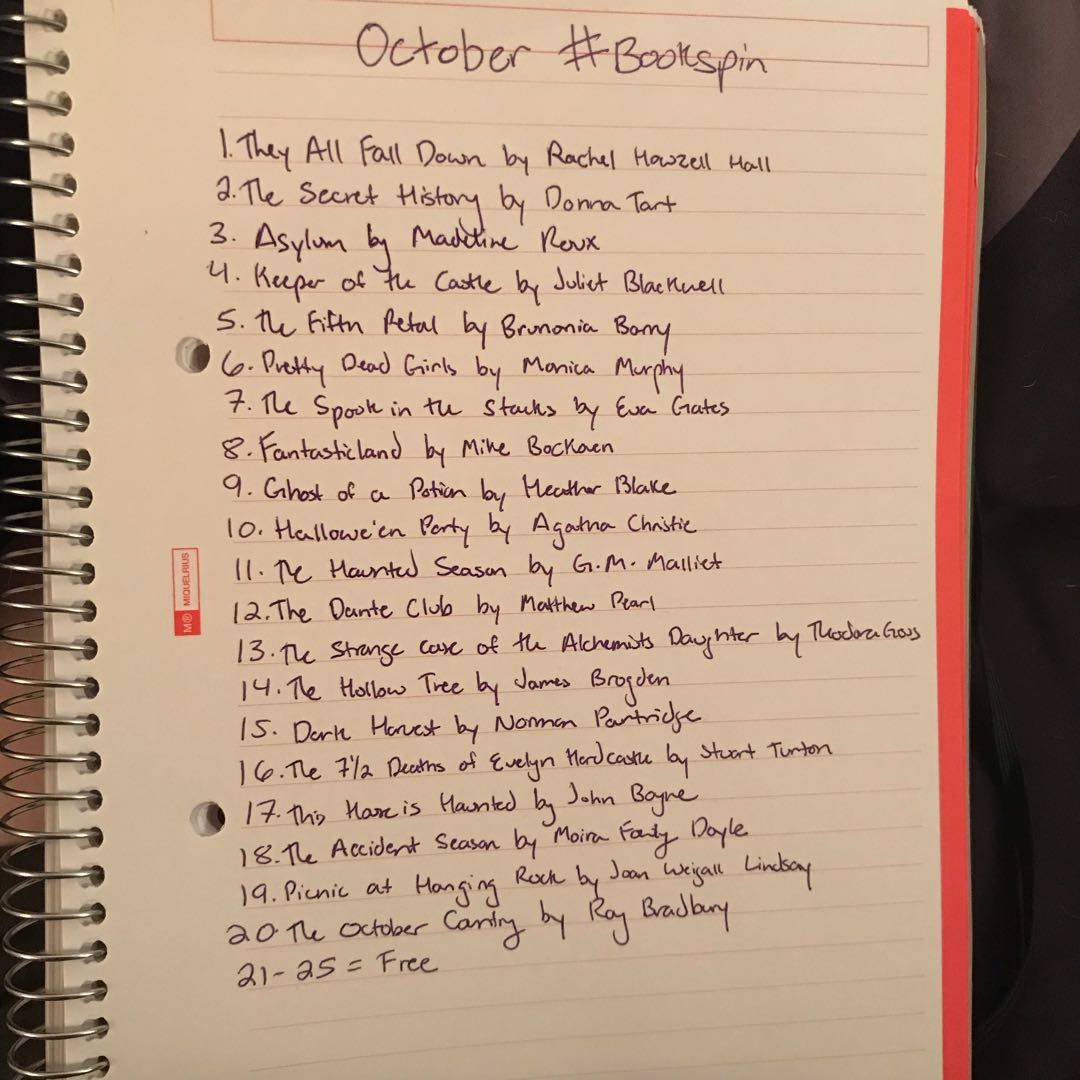 October #Bookspin
1. They All Fall Down by Rachel Howzell Hall
2. The Secret History by Donna Tart
3. Asylum by Madeline Roux
4. Keeper of the Castle by Juliet Blackwell
5. The Fifth Petal by Brunonia Barry
6. Pretty Dead Girls by Monica Murphy
7. The Spook in the Stacks by Eva Gates
8. Fantasticland by Mike Bockoven
9. Ghost of a Potion by Heather Blake
10. Hallowe'en Party by Agatha Christie
11. The Haunted Season by G.M. Malliet
M MIQUELRIUS
12. The Dante Club by Matthew Pearl
13. The Strange case of the Alchemists Daughter by Theodora Goss
14. The Hollow Tree by James Brogden
15. Dark Harvest by Norman Partridge
16. The 7 1/2 Deaths of Evelyn Hardcastle by Stuart Turton
17. This House is Haunted by John Boyne
18. The Accident Season by Moira Fowley Doyle
19. Picnic at Hanging Rock by Joan Weigall Lindsay
20. The October Country by Ray Bradbury
21-25 = Free